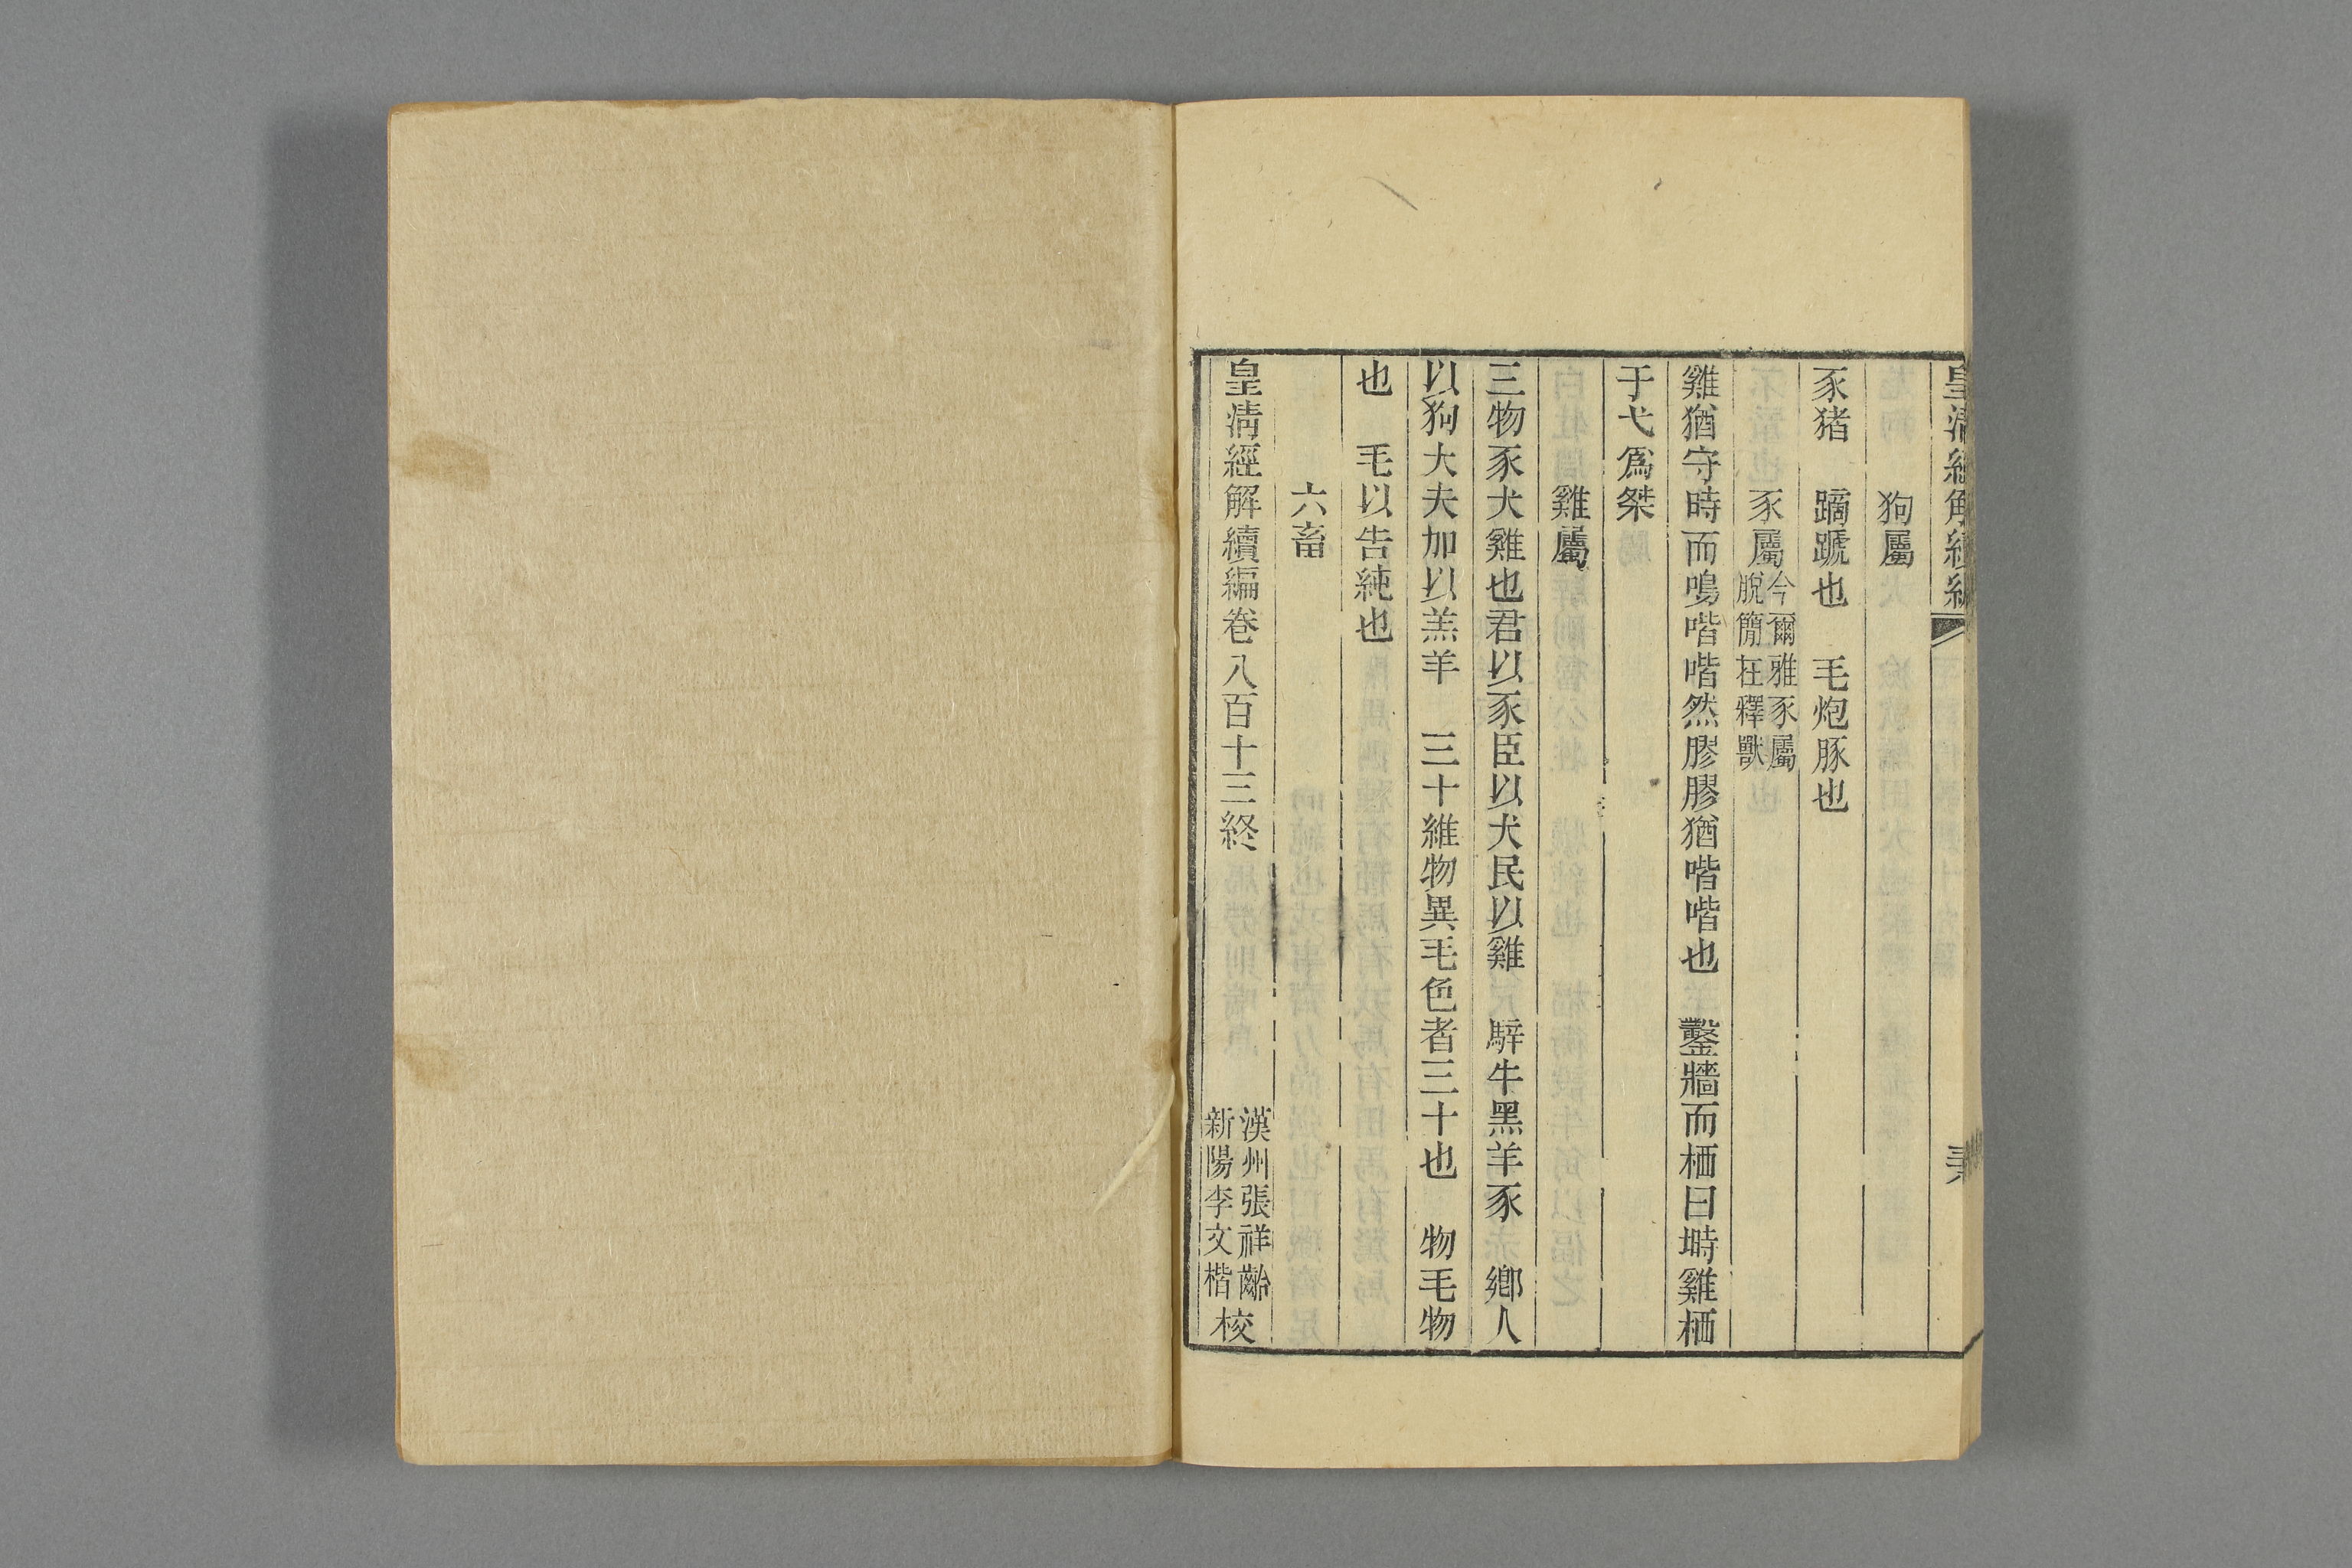 皇清經解續編
狗屬
豕猪　蹢蹏也　毛炮豚也
豕屬今爾雅豕屬脫簡在釋獸
雞猶守時而鳴喈喈然膠膠猶喈喈也　鑿牆而栖曰塒雞栖
于弋爲桀
雞屬
三物豕犬雞也君以豕臣以犬民以雞　騂牛黑羊豕　鄉人
以狗大夫加以羔羊　三十維物異毛色者三十也　物毛物
也　毛以告純也
六畜
皇清經解續編卷八百十三終　漢州張祥齡新陽李文楷校